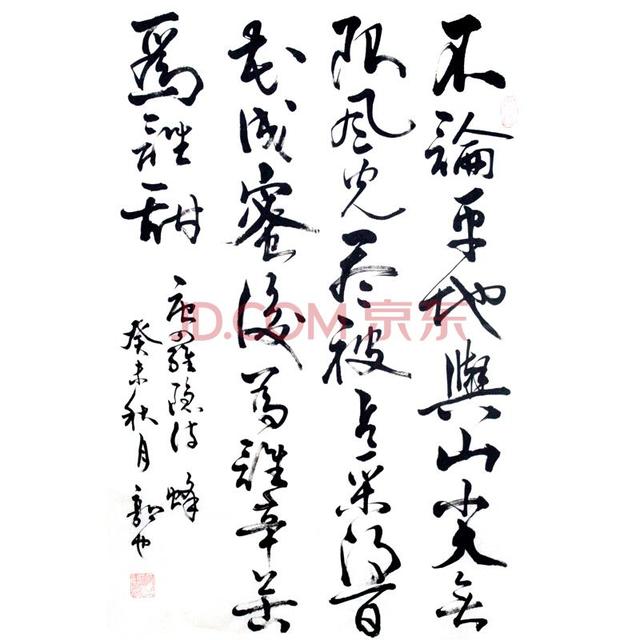 不論平地與山尖無
限風光尽被占采得百
花成蜜後為誰辛苦
爲誰甜
唐羅隱詩 蜂
癸未秋月
JD.COM 京东